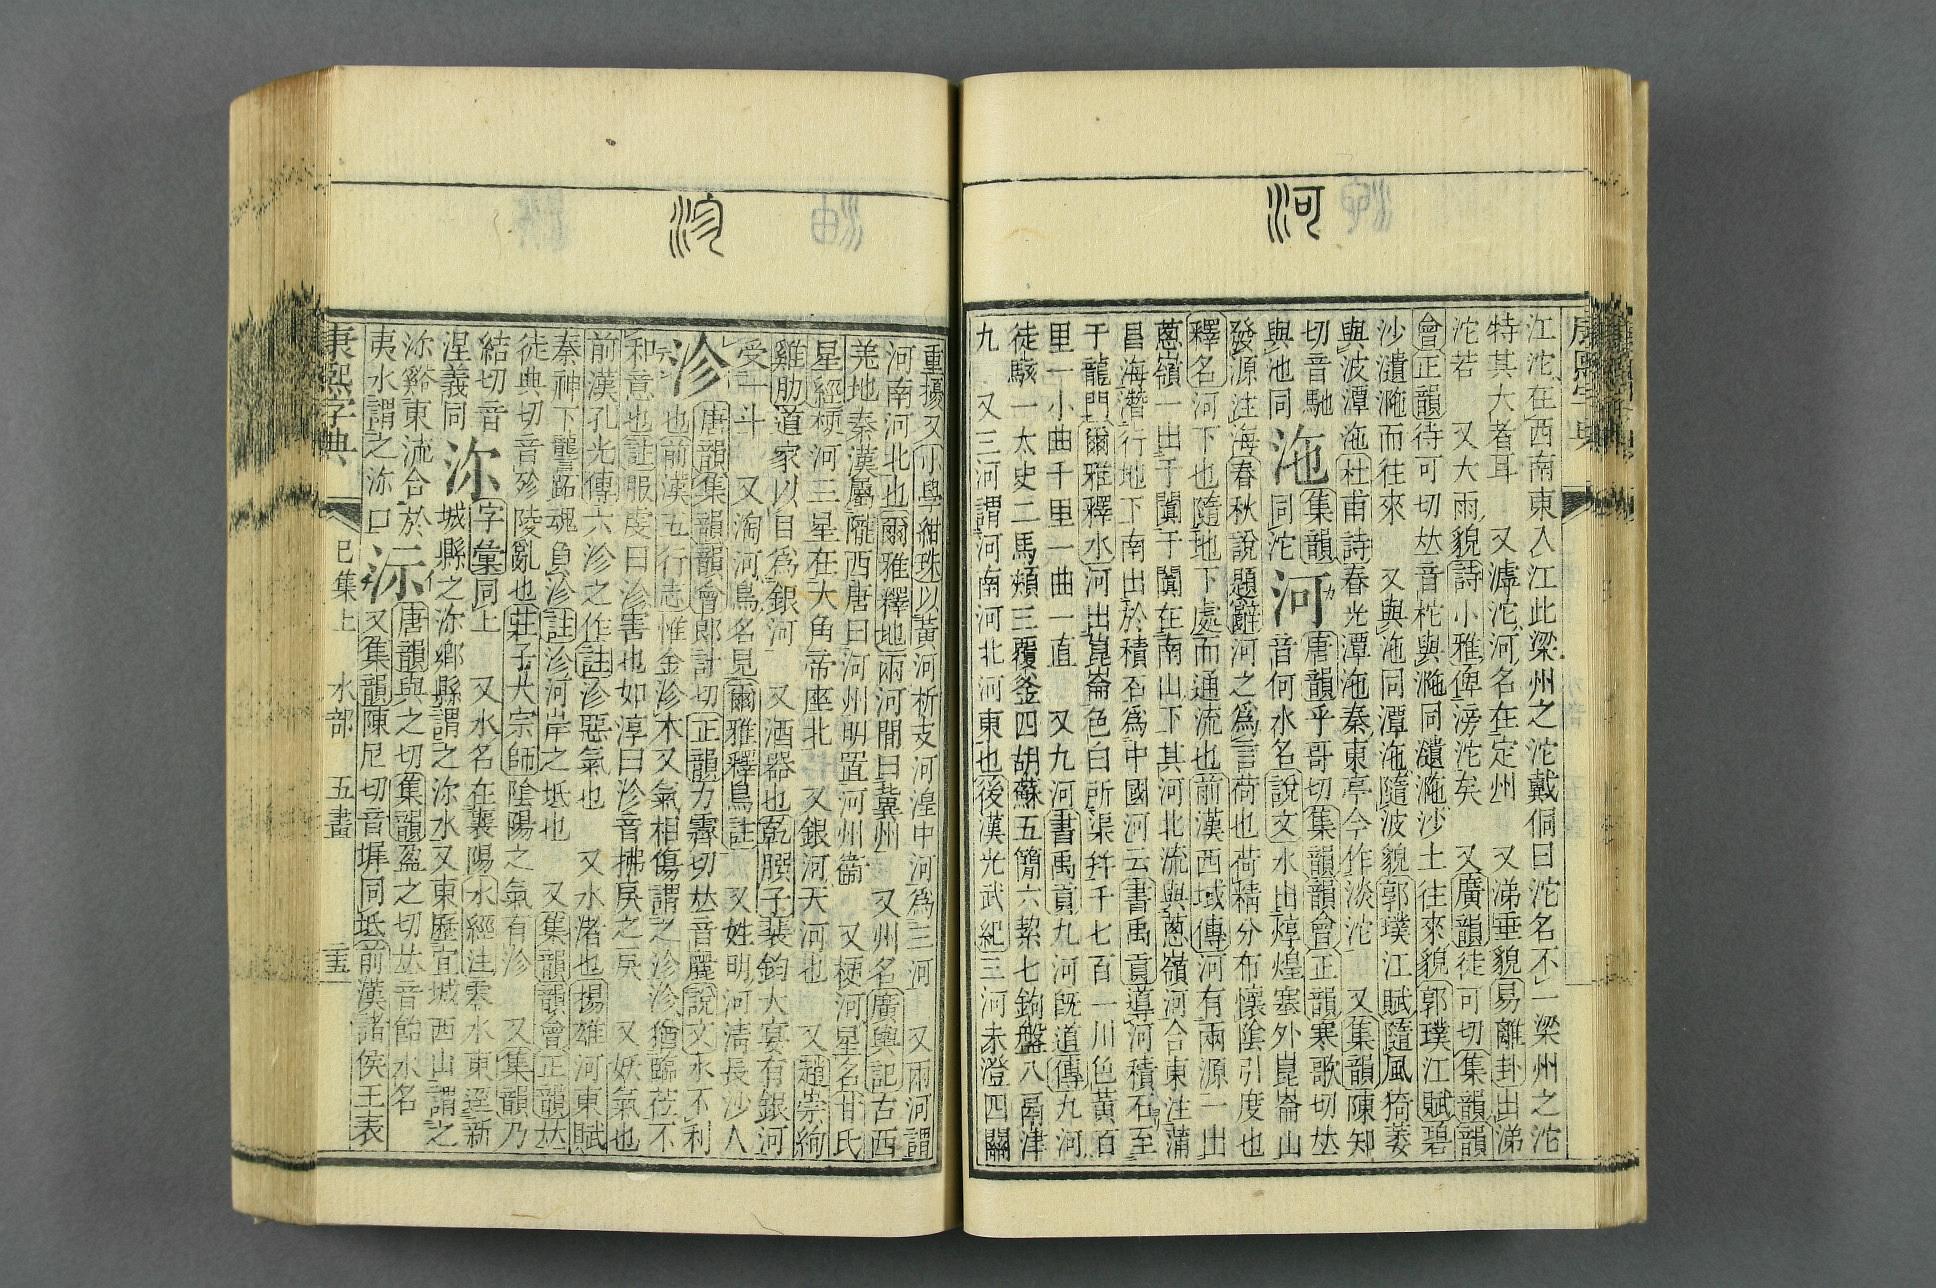 河
江沱在西南東入江此梁州之沱戴侗曰沱名不一梁州之沱
特其大者耳 又滹沱河名在定州 又涕垂貌易離卦出涕
沱若 又大雨貌詩小雅俾滂沱矣 又廣韻徒可切集韻韻
會正韻待可切𠀤音柁與沲同㵣沲沙土往來貌郭璞江賦碧
沙㵣沲而往來 又與沲同潭沲隨波貌郭璞江賦隨風猗萎
與波潭沲杜甫詩春光潭沲秦東亭今作淡沱 又集韻陳知
切音馳
與池同
沲
集韻
同沱
河
唐韻乎哥切集韻韻會正韻寒歌切𠀤
音何水名說文水出焞煌塞外崑崙山
發源注海春秋說題辭河之爲言荷也荷精分布懷陰引度也
釋名河下也隨地下處而通流也前漢西域傳河有兩源一出
蔥嶺一出于闐于闐在南山下其河北流與蔥嶺河合東注蒲
昌海潛行地下南出於積石爲中國河云書禹貢導河積石至
于龍門爾雅釋水河出崑崙色白所渠幷千七百一川色黃百
里一小曲千里一曲一直 又九河書禹貢九河旣道傳九河
徒駭一太史二馬頰三覆釜四胡蘇五簡六絜七鉤盤八鬲津
九 又三河謂河南河北河東也後漢光武紀三河未澄四關
沴
重擾又小學紺珠以黃河析支河湟中河爲三河 又兩河謂
河南河北也爾雅釋地兩河閒曰冀州 又州名廣輿記古西
羌地秦漢屬隴西唐曰河州明置河州衞 又梗河星名甘氏
星經梗河三星在大角帝座北又銀河天河也 又趙崇絢
雞肋道家以目爲銀河 又酒器也乾𦠆子裴鈞大宴有銀河
受一斗 又淘河鳥名見爾雅釋鳥註 又姓明河淸長沙人
沴
唐韻集韻韻會郎計切正韻力霽切𠀤音麗說文水不利
也前漢五行志惟金沴木又氣相傷謂之沴沴猶臨莅不
和意也註服虔曰沴害也如淳曰沴音拂戾之戾 又妖氣也
前漢孔光傳六沴之作註沴惡氣也 又水渚也揚雄河東賦
秦神下讋跖魂負沴註沴河岸之坻也 又集韻韻會正韻𠀤
徒典切音殄陵亂也莊子大宗師陰陽之氣有沴 又集韻乃
結切音
涅義同
沵
字彙同上 又水名在襄陽水經注零水東逕新
城縣之沵鄉縣謂之沵水又東歷宜城西山謂之
沵谿東流合於
夷水謂之沵口
沶
唐韻與之切集韻盈之切𠀤音飴水名
又集韻陳尼切音墀同坻前漢諸侯王表
康熙字典 巳集上 水部 五畫